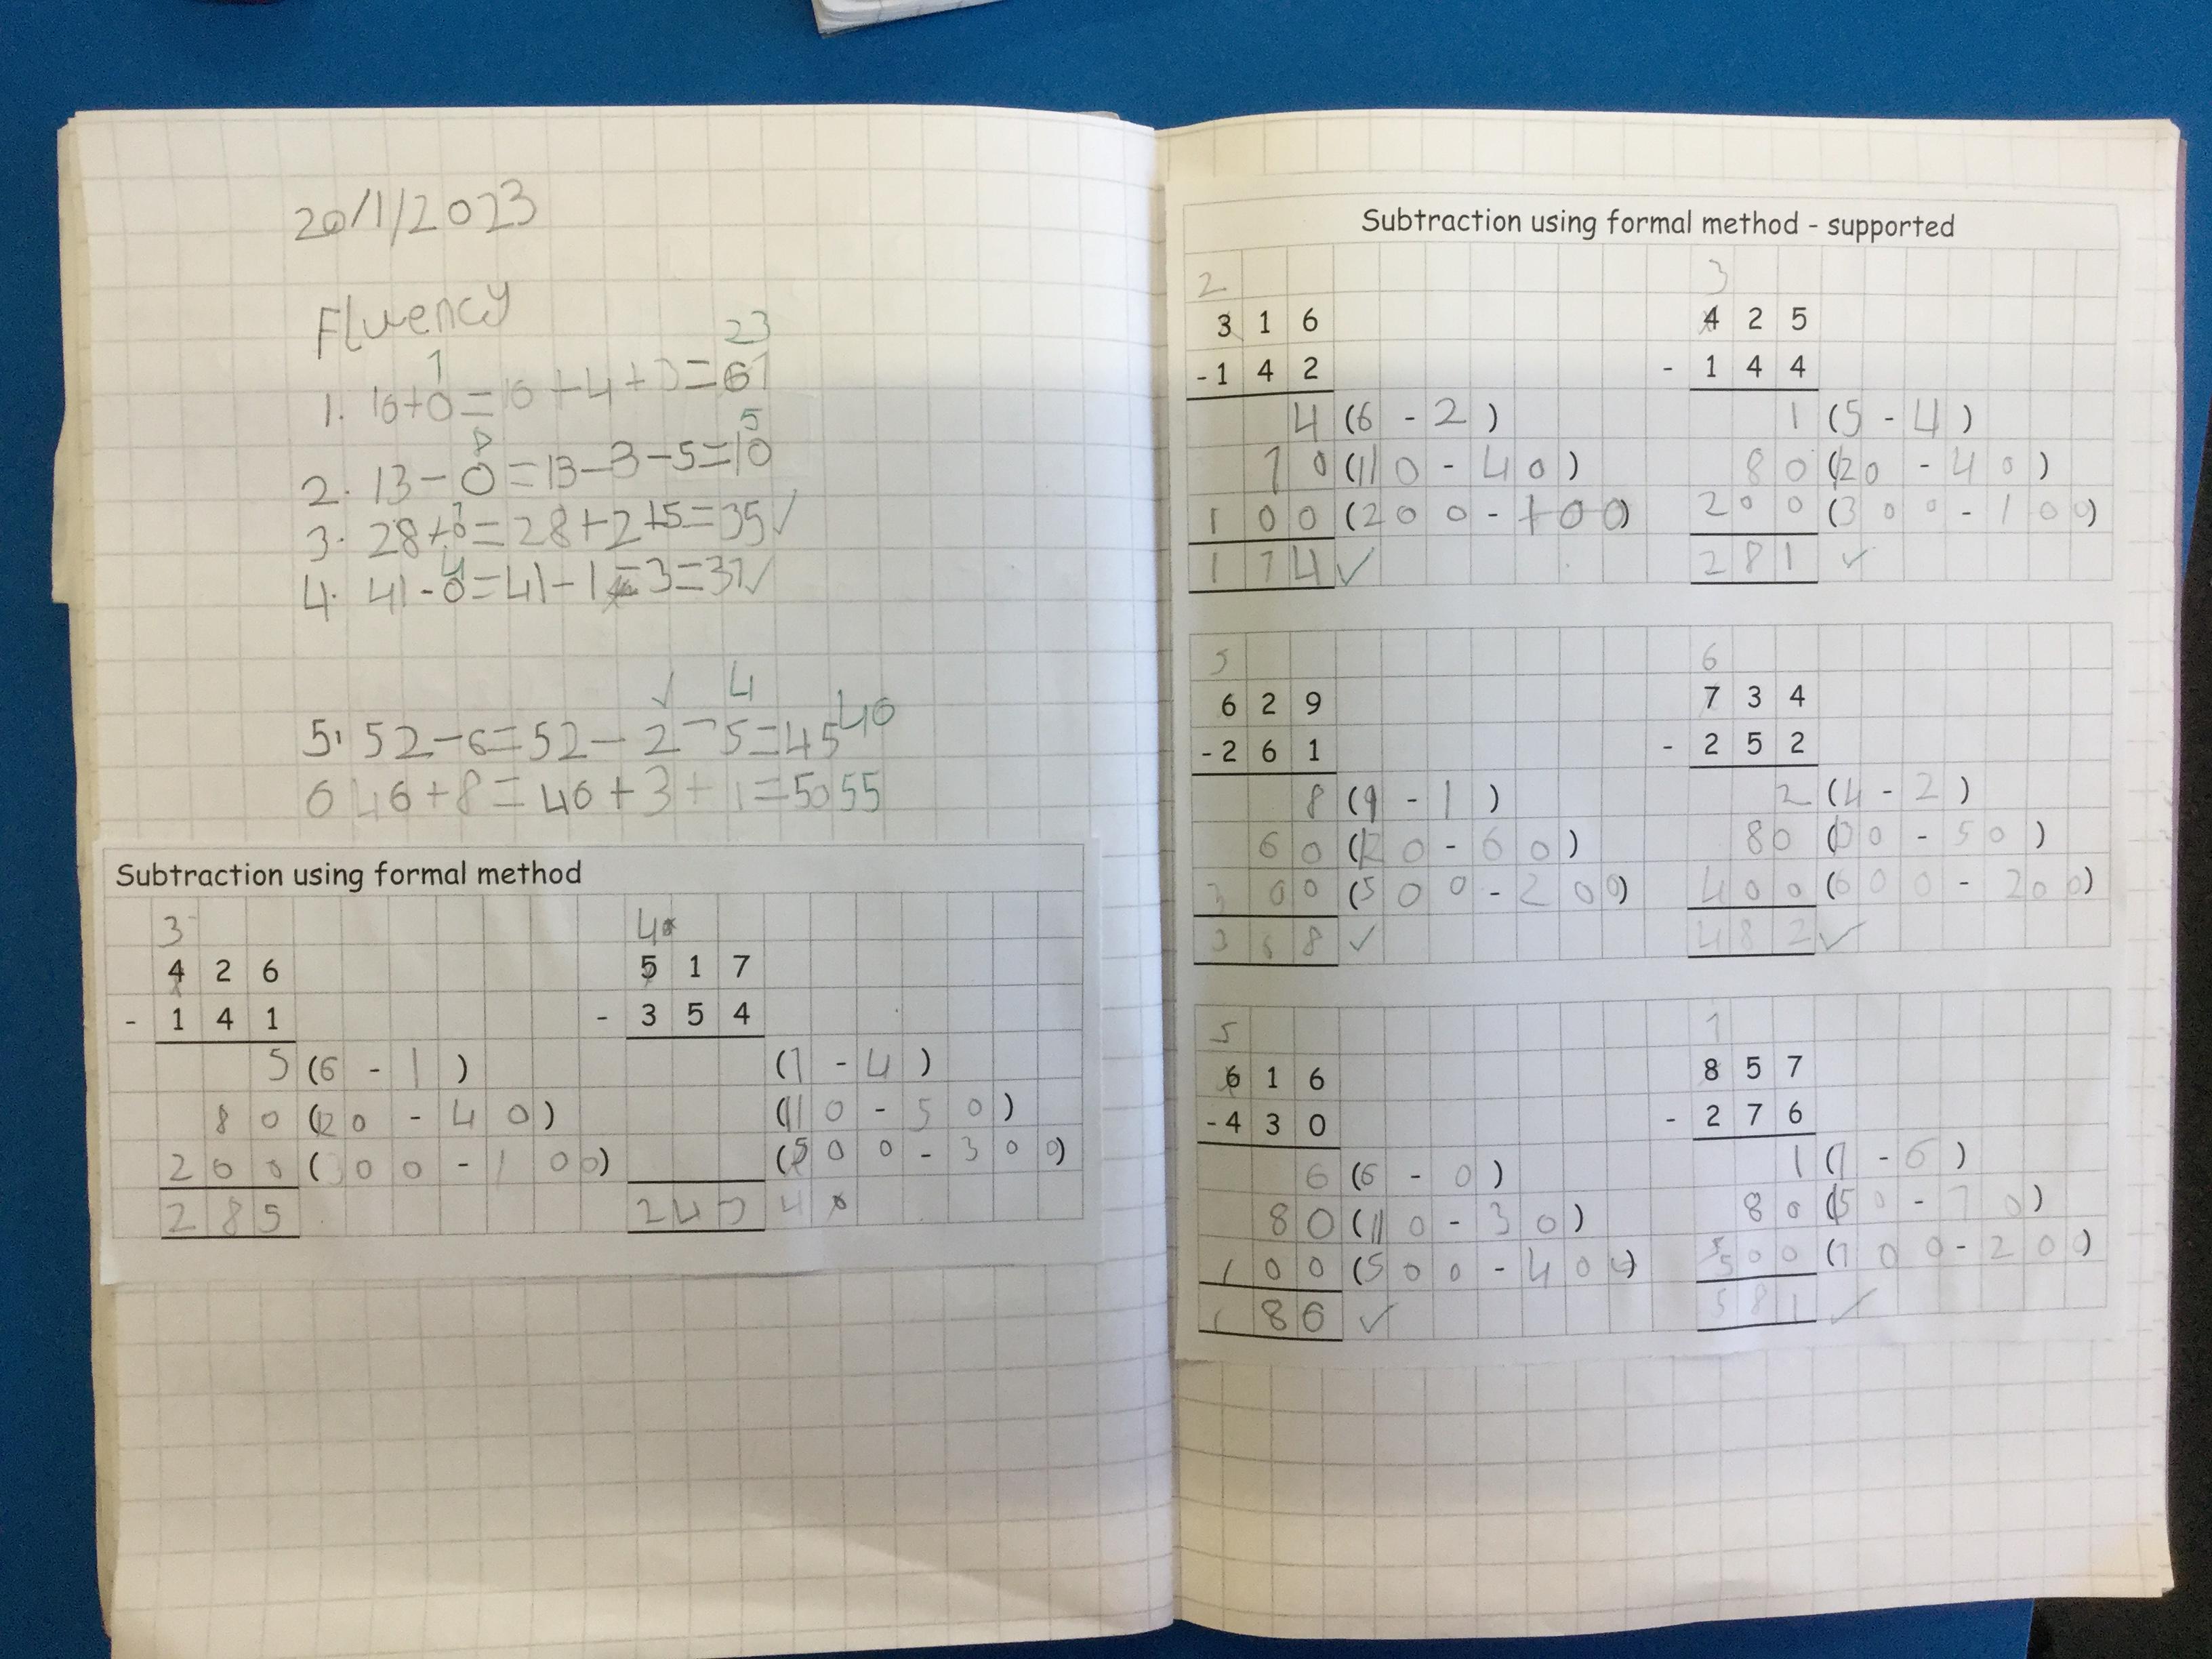 20/1/2023
Fluency
23
7
1. 16+0=16+4+3=61
5
8
2. 13-0=13-3-5=10
3. 28+ =28+2+5=35✓
4
4. 41-0=41-1-3=37✓
✓ 4
5. 52-6=52-2-5=45 46
6 46+8=46+3+1=50 55
Subtraction using formal method
3
4 2 6
- 1 4 1
5 (6 - 1 )
8 0 (120 - 4 0)
2 0 0 (300 - 1 00)
2 8 5
4
5 1 7
- 3 5 4
(7 - 4 )
(110 - 5 0)
(500 - 300)
2 4 4
Subtraction using formal method - supported
2
3 1 6
- 1 4 2
4 (6 - 2 )
7 0 (110 - 40)
1 0 0 (200 - 100)
1 7 4 ✓
3
4 2 5
- 1 4 4
1 (5 - 4 )
8 0 (120 - 40)
2 0 0 (300 - 100)
2 8 1 ✓
5
6 2 9
- 2 6 1
8 (9 - 1 )
6 0 (120 - 60)
3 0 0 (500 - 200)
3 6 8 ✓
6
7 3 4
- 2 5 2
2 (4 - 2 )
8 0 (130 - 50)
4 0 0 (600 - 200)
4 8 2 ✓
5
6 1 6
- 4 3 0
6 (6 - 0 )
8 0 (110 - 30)
1 0 0 (500 - 400)
1 8 6 ✓
7
8 5 7
- 2 7 6
1 (7 - 6 )
8 0 (150 - 70)
5 0 0 (700 - 200)
5 8 1 ✓